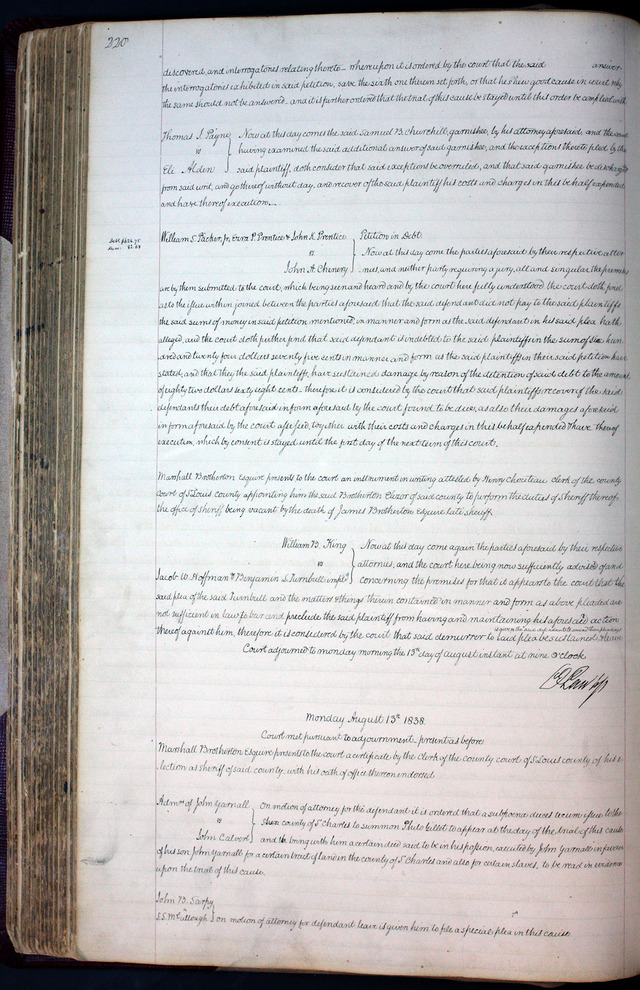 220
discovered, and interrogatories relating thereto - whereupon it is ordered by the court that the said answer
the interrogatories exhibited in said petition, save the sixth one therein set forth, or that he shew good cause in court why
the same should not be answered. and it is further ordered that the trial of this cause be stayed until this order be complied with
Thomas I. Payne
vs
Eli Alden
Now at this day comes the said Samuel B. Churchill, garnishee, by his attorney aforesaid, and the court
having examined the said additional answer of said garnishee, and the exceptions thereto filed by the
said plaintiff, doth consider that said exceptions be overruled, and that said garnishee be discharged
from said writ, and go thereof without day, and recover of the said plaintiff his costs and charges in this behalf expended
and have thereof execution.
Debt $624.75
82.68
William S. Packer, Jr, Ezra P. Prentice & John K. Prentice
vs
John A. Chenery
Petition in Debt.
Now at this day come the parties aforesaid by their respective attor
nies, and neither party requiring a jury, all and singular the premises
are by them submitted to the court, which being seen and heard and by the court here fully understood the court doth find
as to the issue within joined between the parties aforesaid that the said defendant did not pay to the said plaintiffs
the said sums of money in said petition mentioned, in manner and form as the said defendant in his said plea hath
alleged, and the court doth further find that said defendant is indebted to the said plaintiffs in the sum of six hun
dred and twenty four dollars seventy five cents in manner and form as the said plaintiffs in their said petition have
stated, and that they the said plaintiffs, have sustained damage by reason of the detention of said debt to the amount
of eighty two dollars sixty eight cents. therefore it is considered by the court that said plaintiffs recover of the said
defendants their debt aforesaid in form aforesaid by the court found to be due, as also their damages aforesaid
in form aforesaid by the court assessed, together with their costs and charges in this behalf expended & have thereof
execution, which by consent is stayed until the first day of the next term of this court.
Marshall Brotherton Esquire presents to the court an instrument in writing attested by Henry Chouteau clerk of the county
court of St Louis county appointing him the said Brotherton Elizor of said county to perform the duties of Sheriff thereof
the office of sheriff being vacant by the death of James Brotherton Esquire late sheriff.
William B. King
vs
Jacob W. Hoffman & Benjamin S. Turnbull
Now at this day come again the parties aforesaid by their respective
attornies, and the court here being now sufficiently advised of and
concerning the premises for that it appears to the court that the
said plea of the said Turnbull and the matters & things therein contained in manner and form as above pleaded are
not sufficient in law to bar and preclude the said plaintiff from having and maintaining his aforesaid action
thereof against him, therefore it is considered by the court that said demurrer to said plea be sustained.
Court adjourned to monday morning the 13th day of august instant at nine o'clock
Monday August 13th 1838.
Court met pursuant to adjournment present as before
Marshall Brotherton Esquire presents to the court a certificate by the Clerk of the county court of St Louis county of his e
lection as sheriff of said county, with his oath of office thereon endorsed
Admr of John Yarnall
vs
John Calvert
On motion of attorney for the defendant it is ordered that a subpoena duces tecum issue to the
county of St Charles to summon to appear at the day of the trial of this cause
and to bring with him a certain deed said to be in his possion, executed by John Yarnall in favor
of his son John Yarnall for a certain tract of land in the county of St Charles and also for certain slaves, to be read in evidence
upon the trial of this cause.
John B. Sarpy
vs
S.S. McCullough
on motion of attorney for defendant leave is given him to file a special plea in this cause